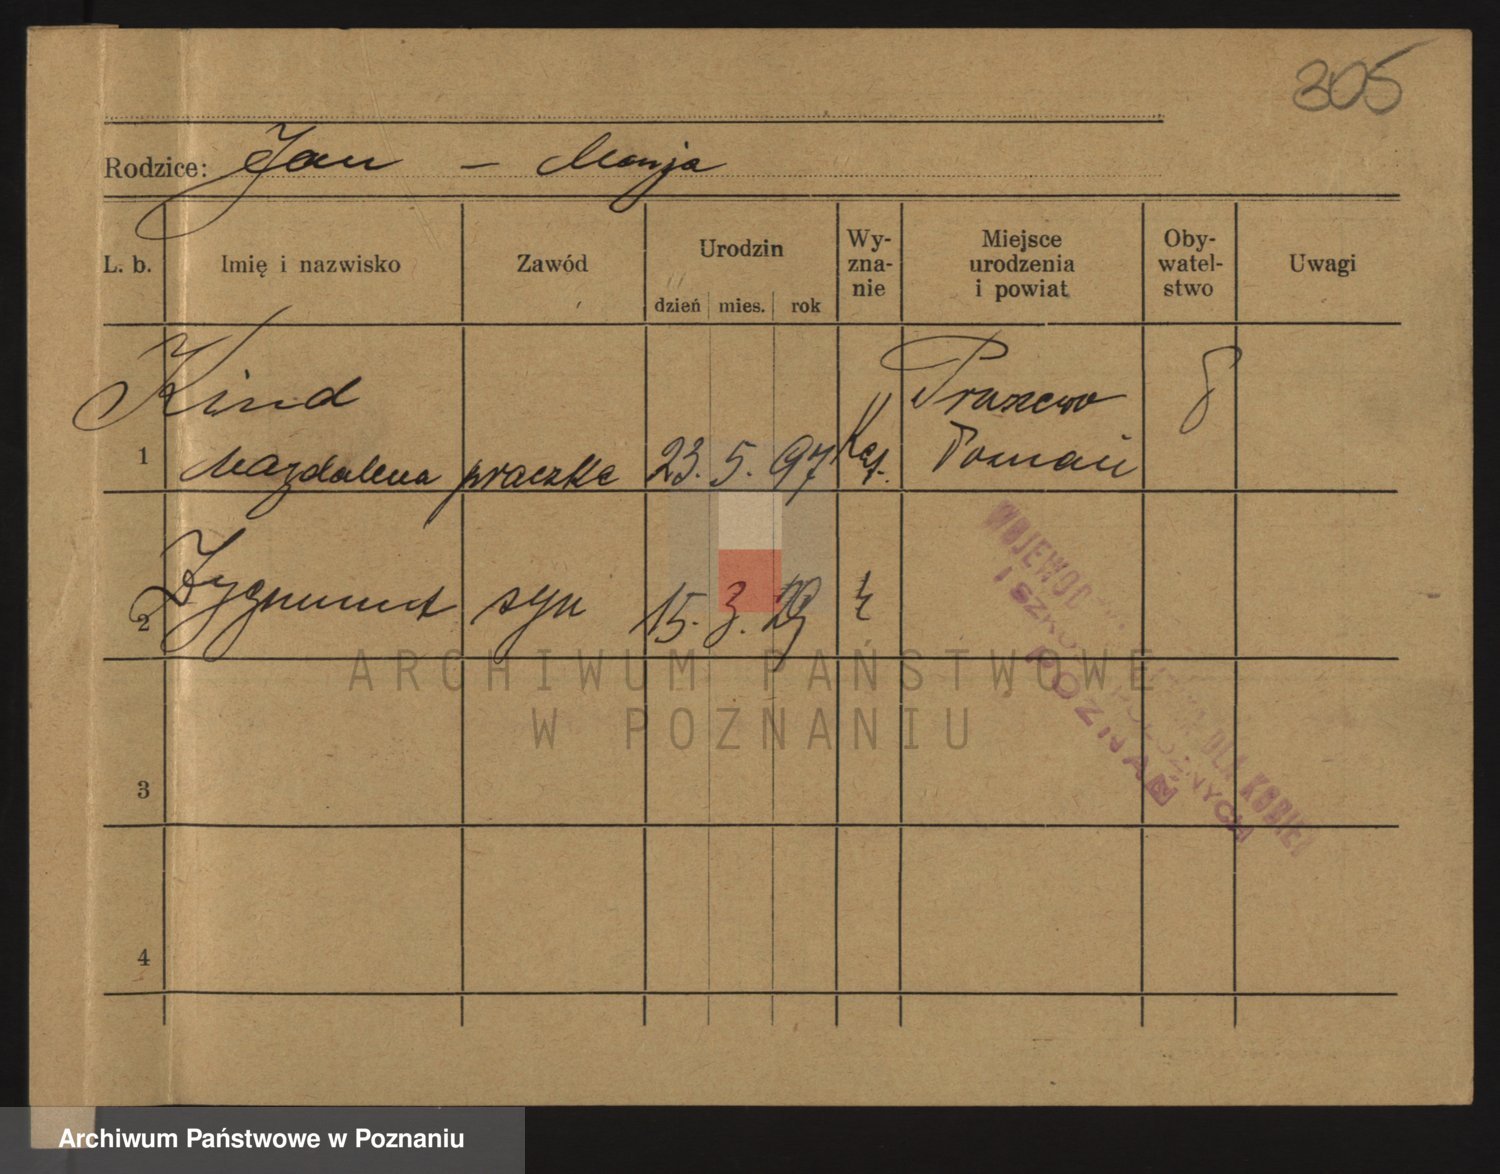 305
Rodzice: Jan – Marja
L. b. Imię i nazwisko Zawód Urodzin dzień mies. rok Wy-zna-nie Miejsce urodzenia i powiat Oby-watel-stwo Uwagi
Kind
1 Magdalena praczka 23. 5. 97 Kat. Poznań
2 Zygmunt syn 15. 3.
3
4
WOJEWÓDZ DLA KOBIET
I SZKO POŁOŻNYCH
POZNAŃ
ARCHIWUM PAŃSTWOWE
W POZNANIU
Archiwum Państwowe w Poznaniu